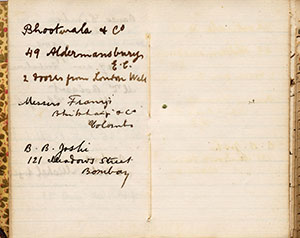 Bhootwala & Co
49 Aldermansbury
E.C.
2 doors from London Wall
Messers Framji
Bhikhaji & Co
Colombo
B. B. Joshi
121 Meadows Street
Bombay